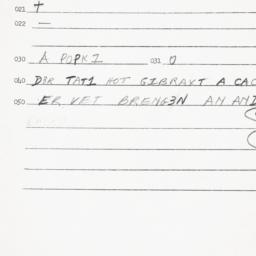 021 +
022 —
030 A POPKI 031 0
040 DER TATI HOT GIBRAXT A CAC
050 ER VET BRENG3N AN AND